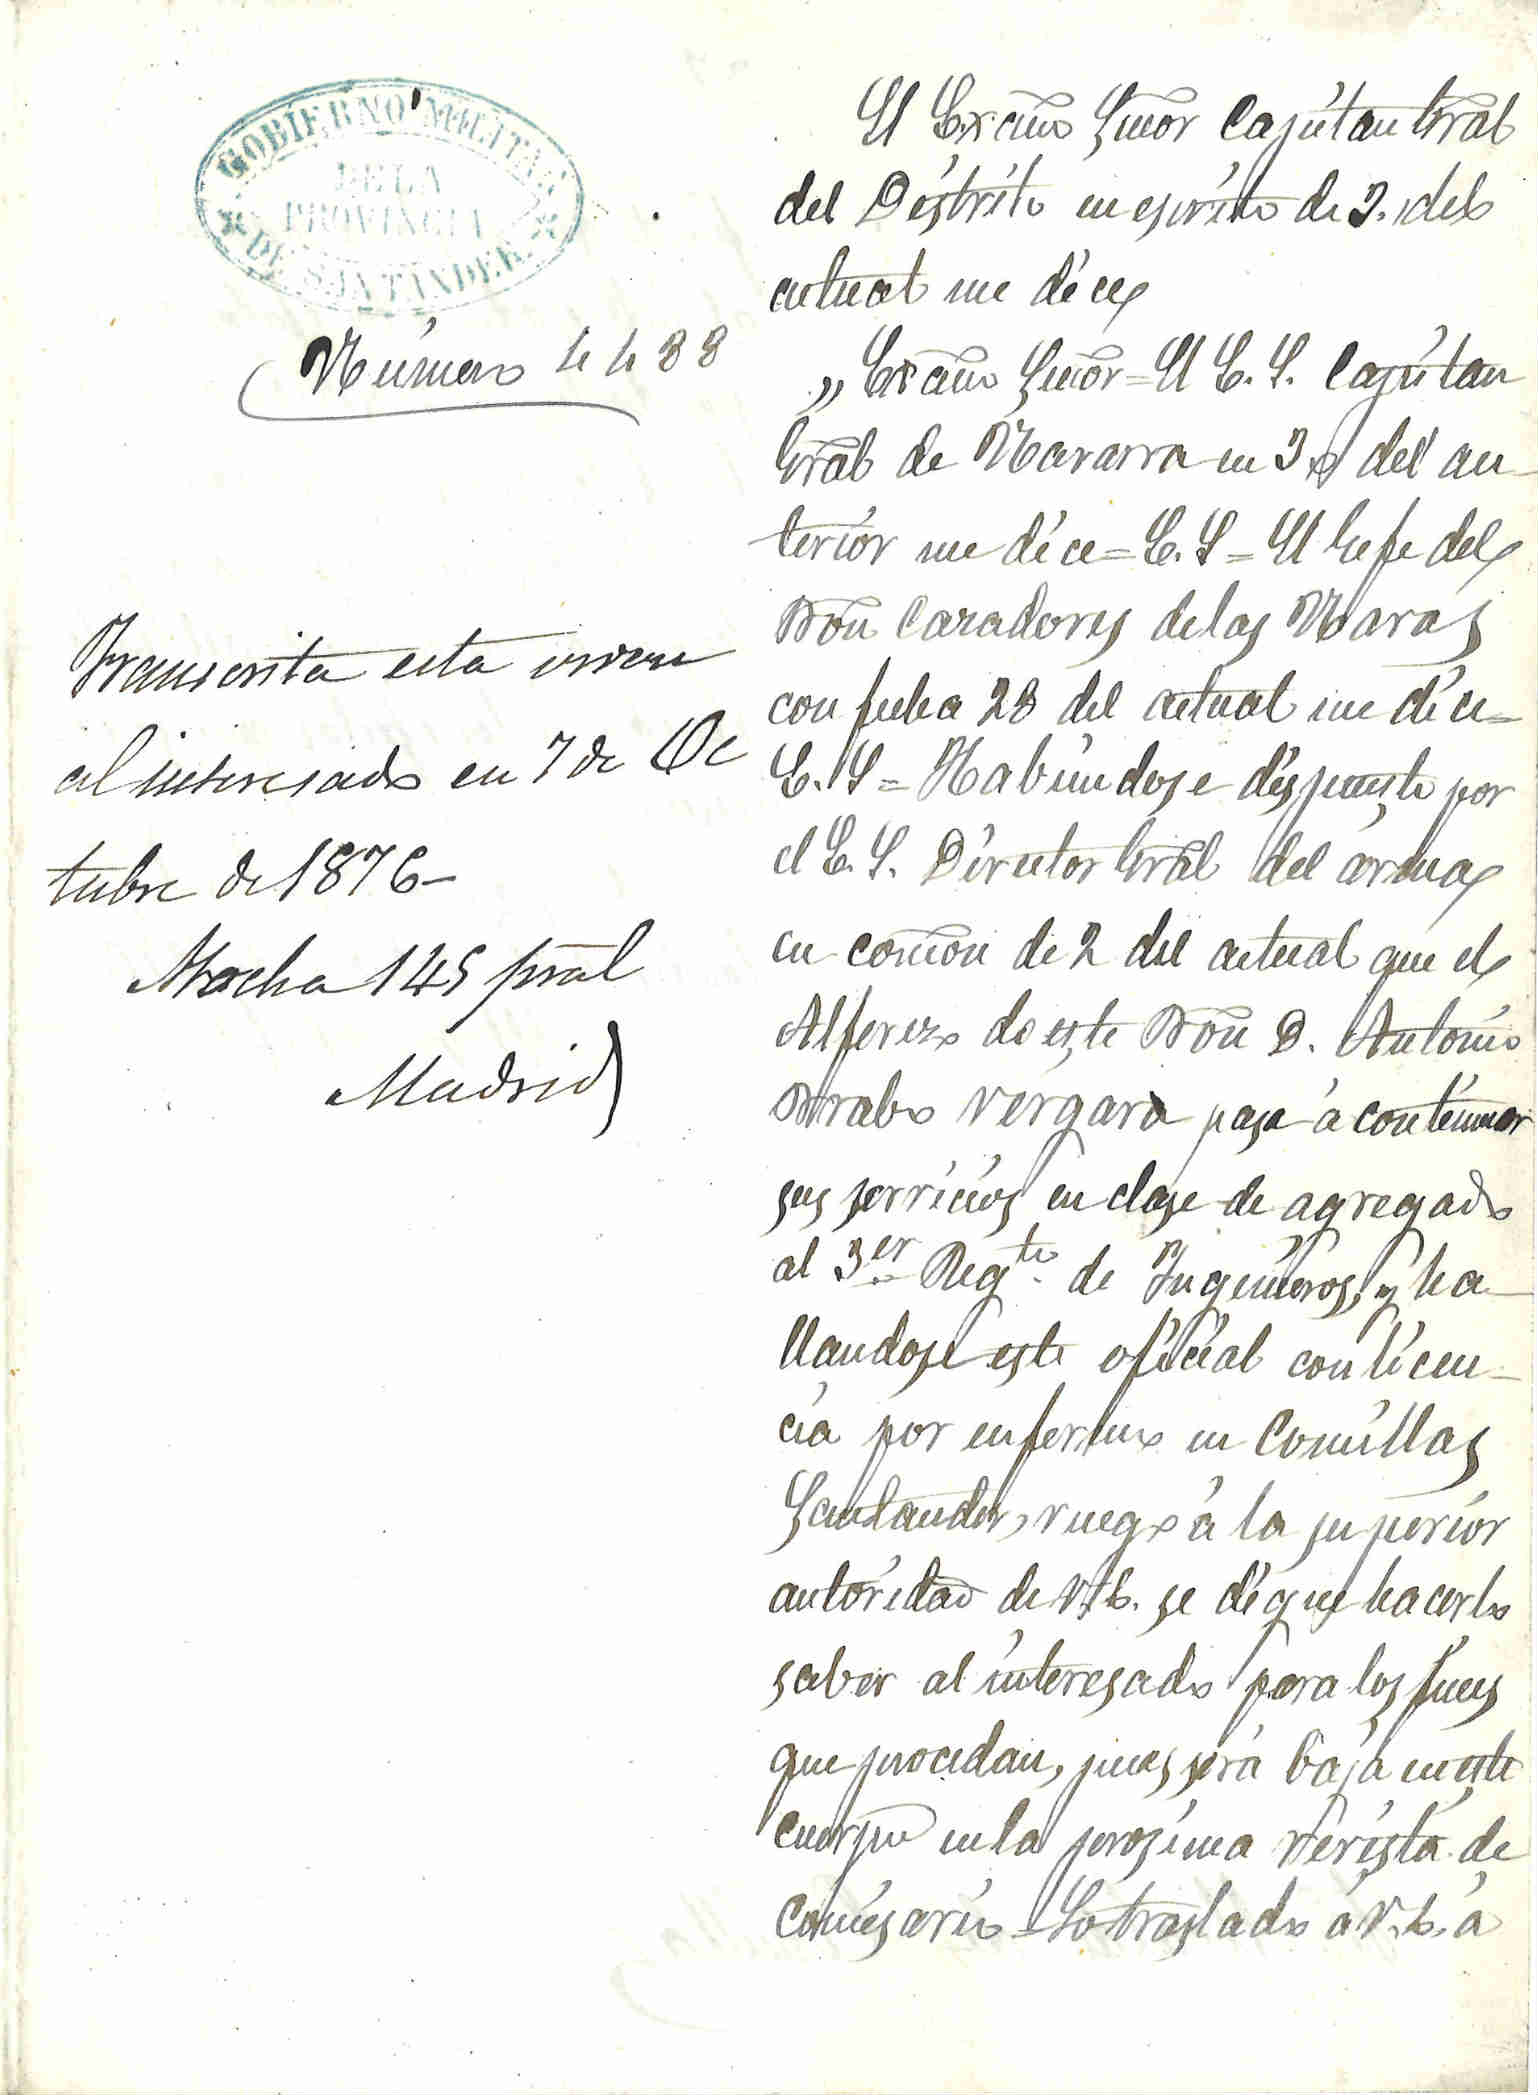 GOBIERNO MILITAR
DE LA
PROVINCIA
DE SANTANDER
Número 4488
Transcrita esta orden
al interesado en 7 de Oc
tubre de 1876-
Atocha 145 pral
Madrid
El Excmo Señor Capitan Gral
del Distrito en escrito de 3. del
actual me dice
„ Excmo Señor = El E. S. Capitan
Gral de Navarra en 30 del an-
terior me dice = E. S = El Gefe del
Bon Cazadores de las Navas
con fecha 28 del actual me dice =
E. S = Habiendose dispuesto por
el E. S. Director Gral del arma
en comon de 2 del actual que el
Alferez de este Bon D. Antonio
Brabo Vergara pase á continuar
sus servicios en clase de agregado
al 3er Regto. de Ingenieros, y ha-
llandose este oficial con licen-
cia por enfermo en Comillas
Santander, ruego á la superior
autoridad de V. E. se digne hacerlo
saber al interesado para los fines
que procedan, pues será baja en este
cuerpo en la procsima revista de
Comisario = Lo traslado á V. E. á